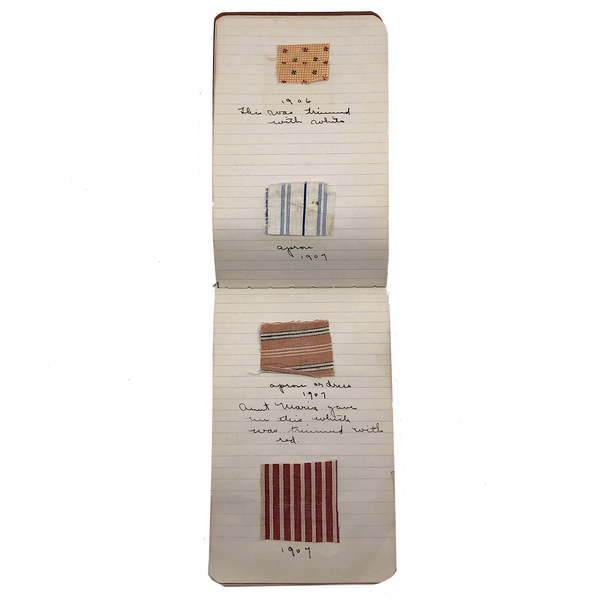 1906
This was trimmed
with white
apron
1907
apron or dress
1907
Aunt Maria gave
me this which
was trimmed with
red.
1907